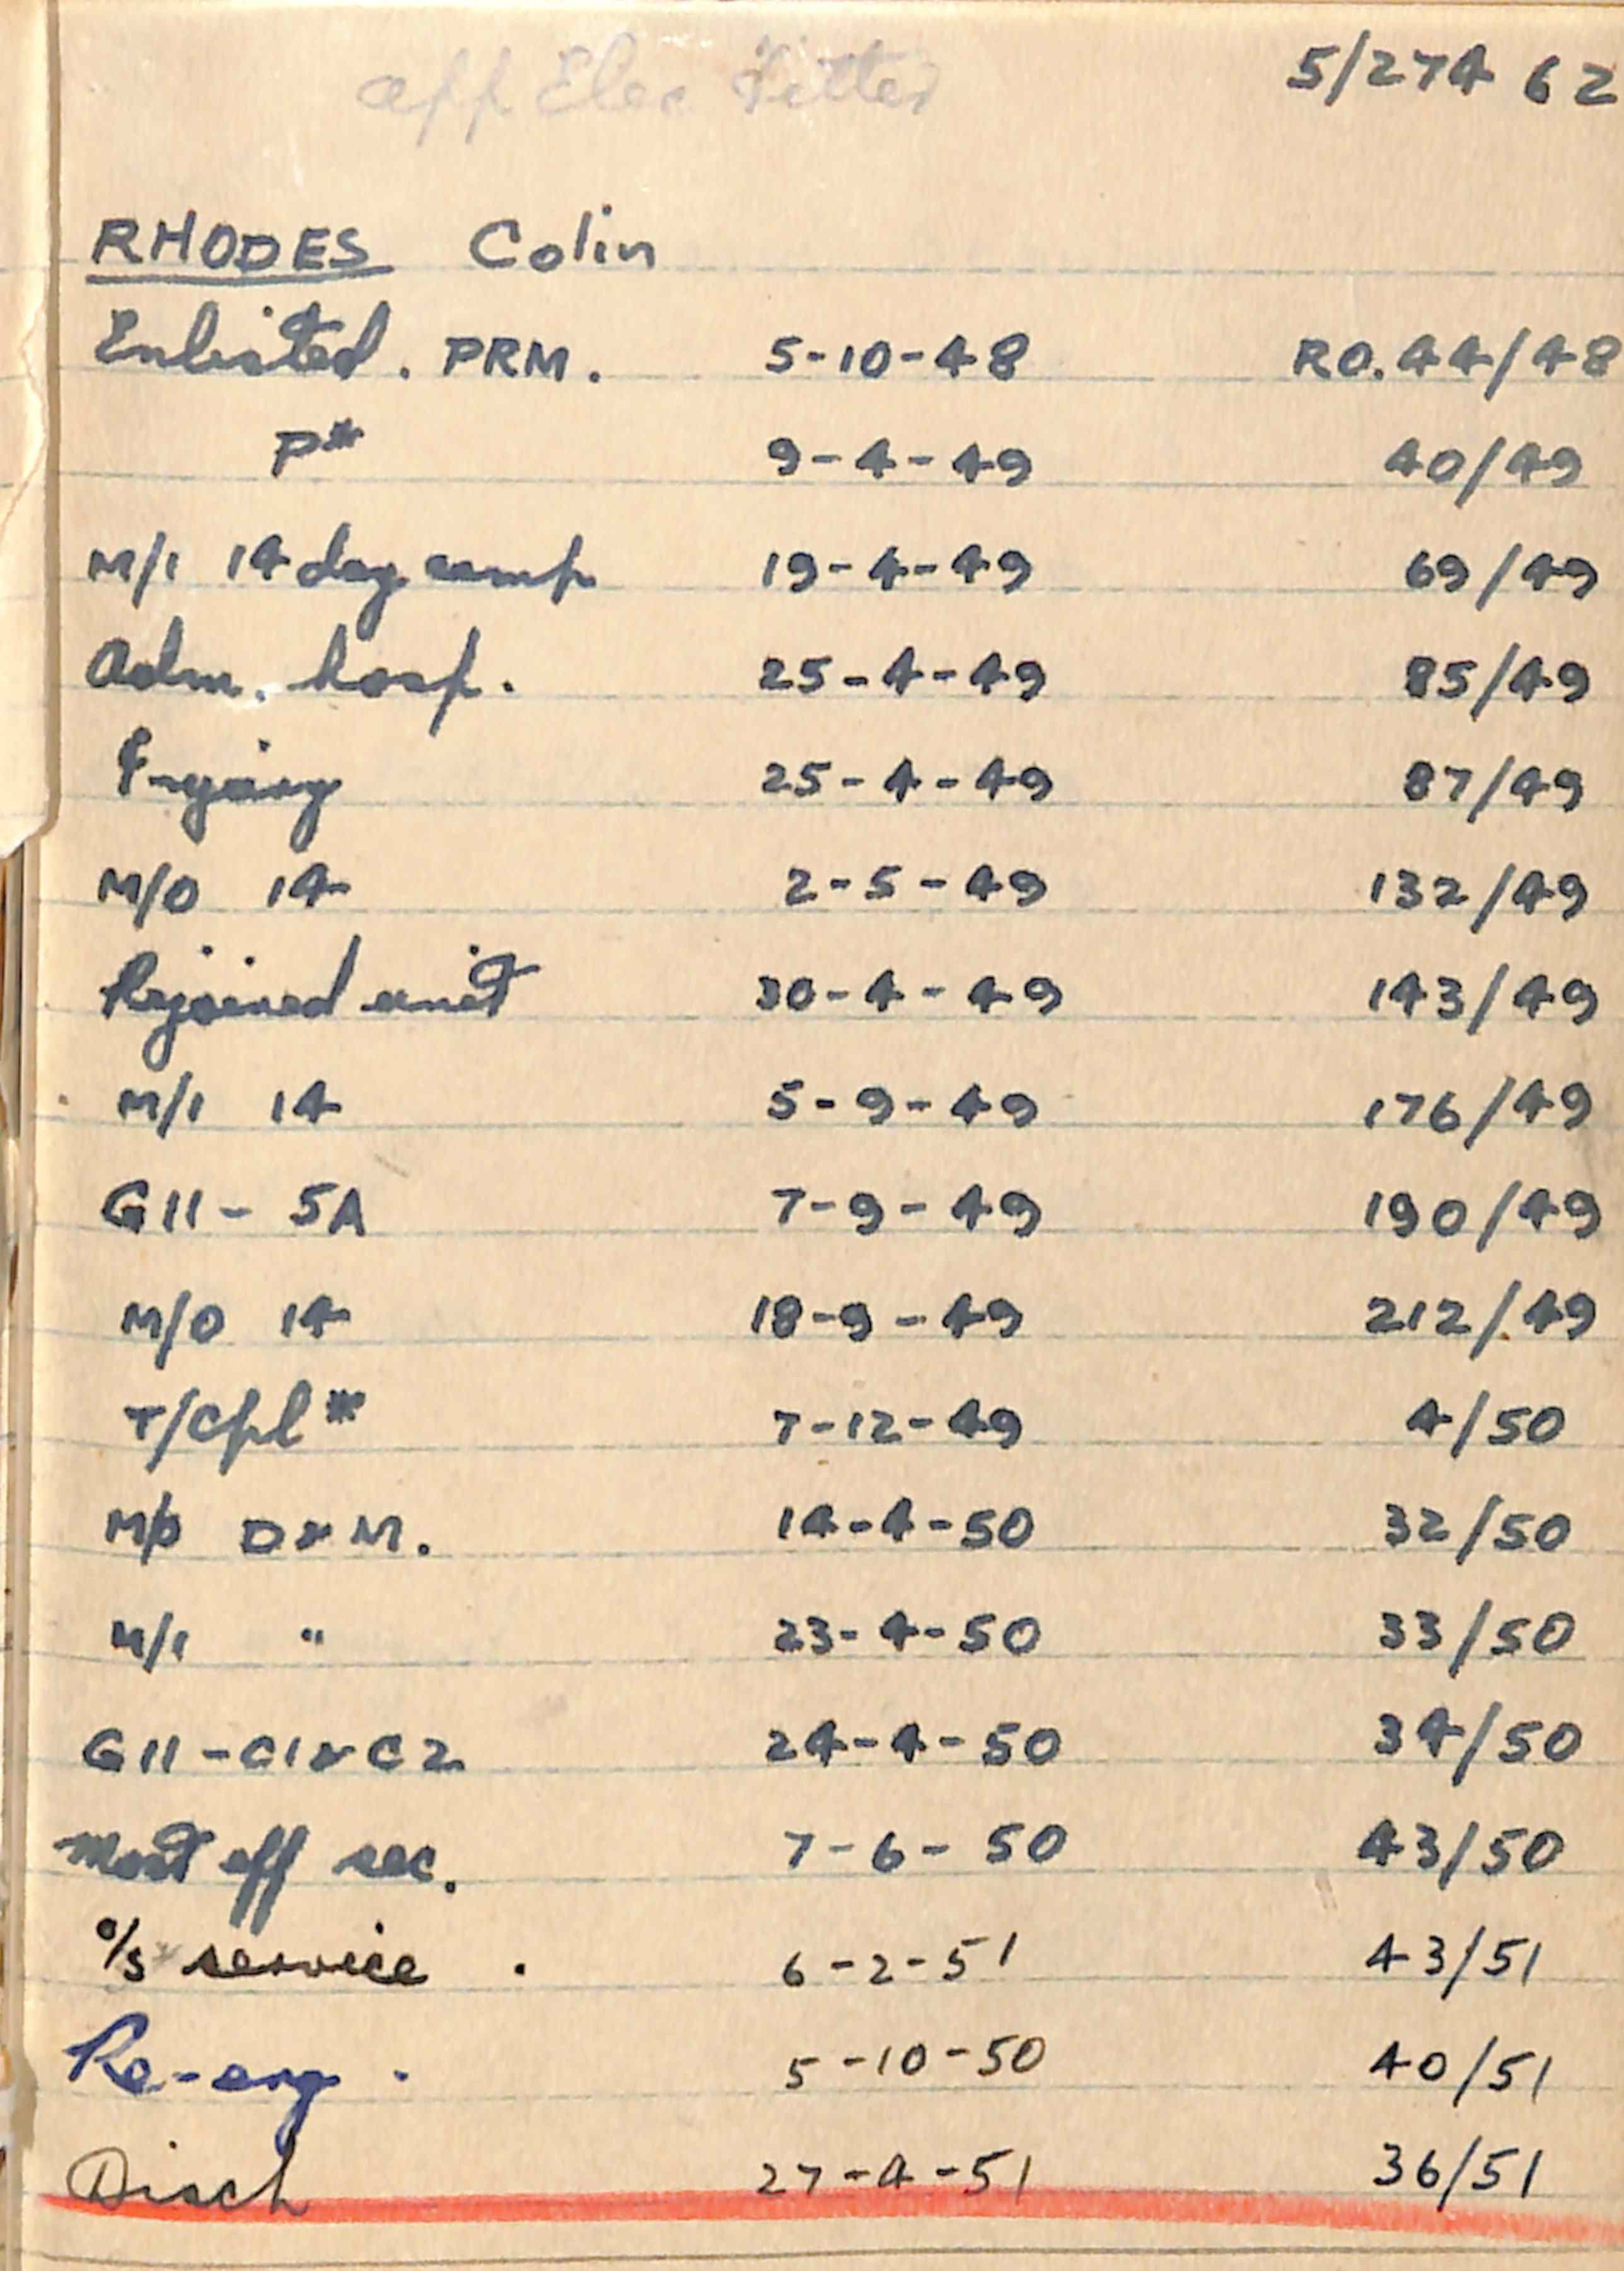 app Elec Fitter 5/274 62
RHODES Colin
Enlisted. PRM. 5-10-48 RO. 44/48
P* 9-4-49 40/49
M/I 14 day camp 19-4-49 69/49
Adm. hosp. 25-4-49 85/49
25-4-49 87/49
M/O 14 2-5-49 132/49
Rejoined unit 30-4-49 143/49
M/I 14 5-9-49 176/49
G11 - 5A 7-9-49 190/49
M/O 14 18-9-49 212/49
T/Cpl * 7-12-49 4/50
M/O D & M. 14-4-50 32/50
M/I " 23-4-50 33/50
G11 - C1 & C2 24-4-50 34/50
Most eff sec. 7-6-50 43/50
o/s service . 6-2-51 43/51
Re-eng . 5-10-50 40/51
Disch 27-4-51 36/51